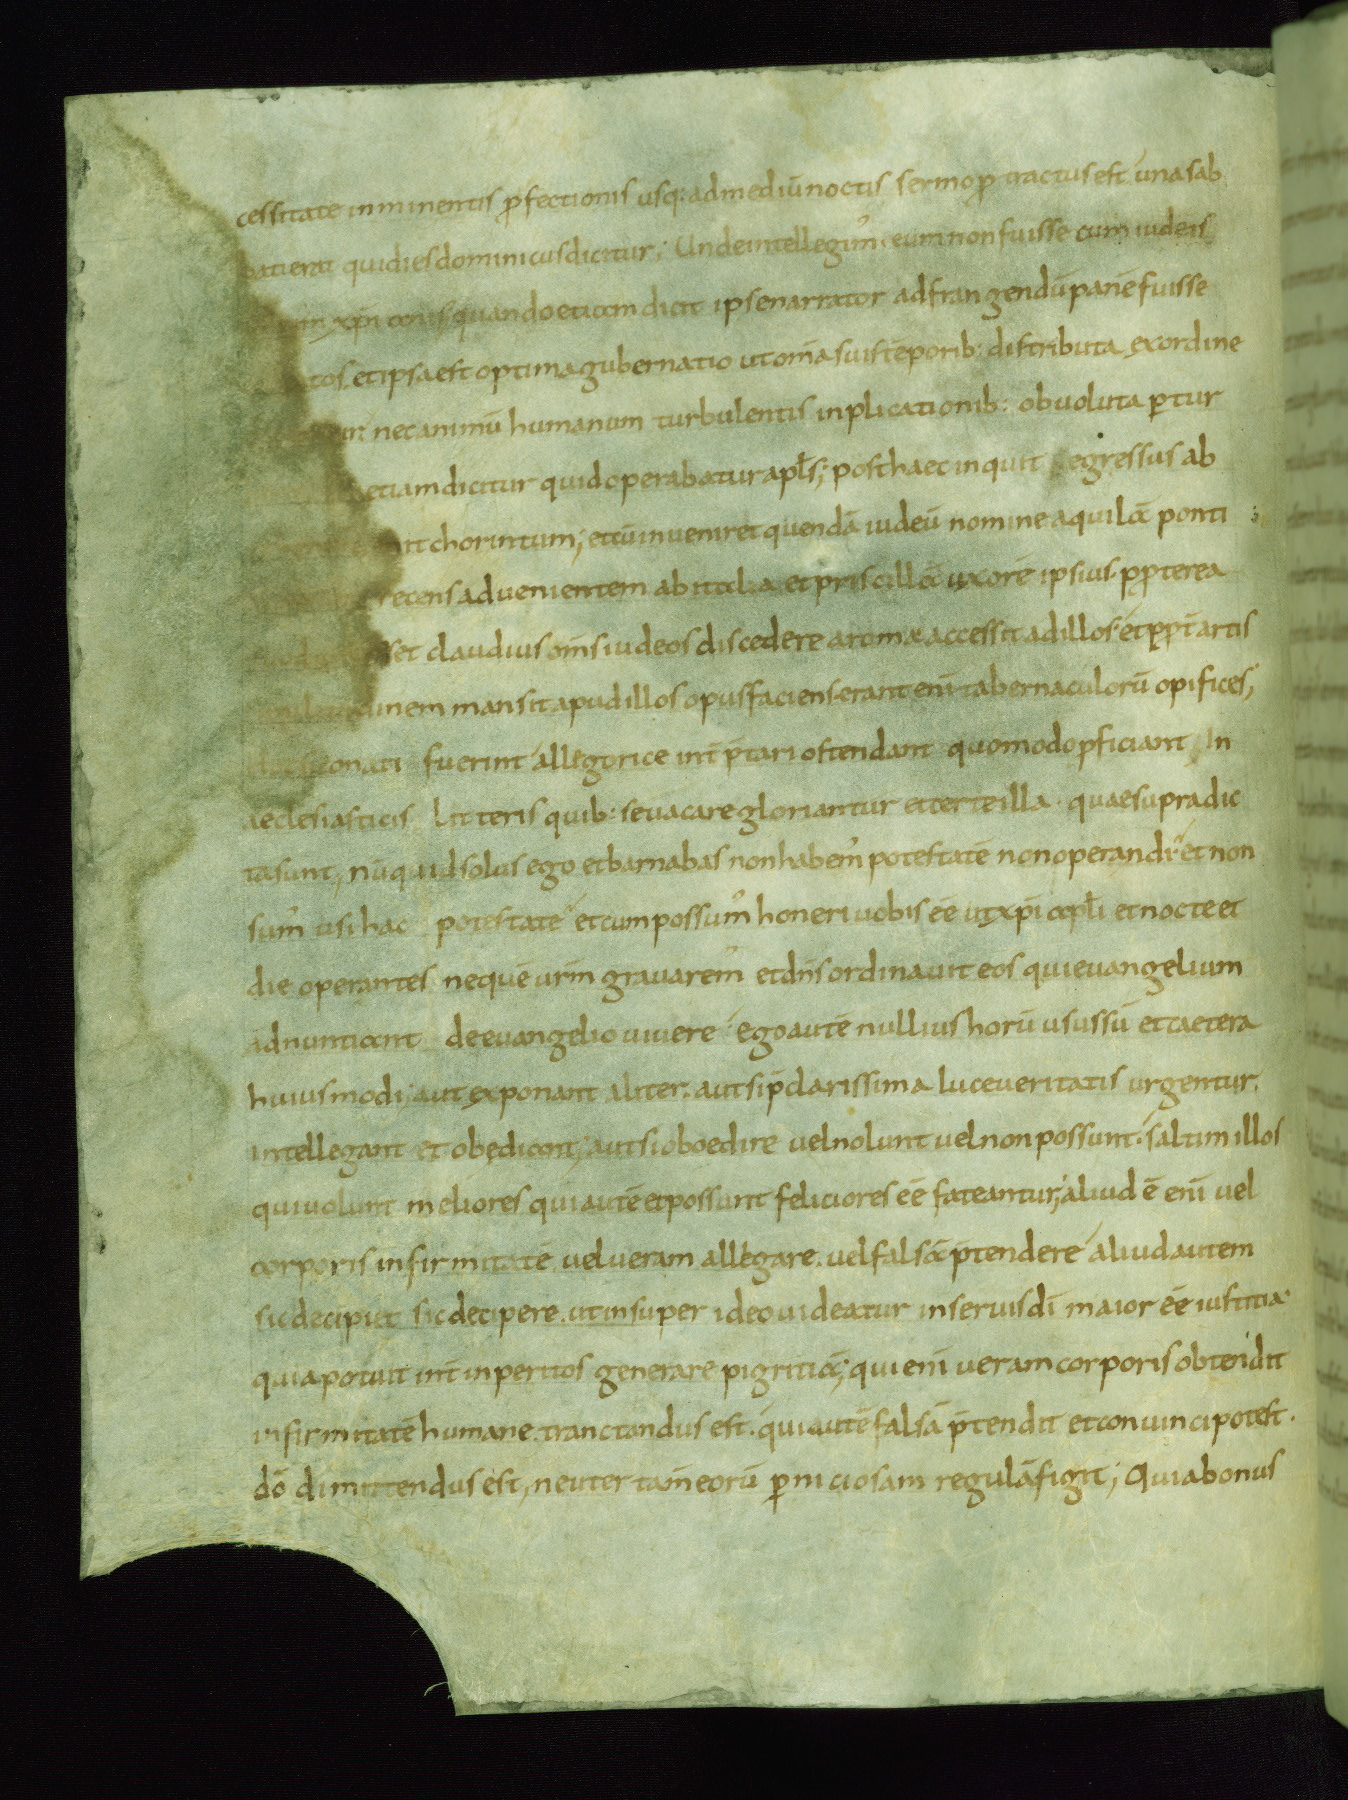 cessitate inminentis ꝑfectionis usq; ad mediū noctis sermo ꝑtractus est una sab
bati erat qui dies dominicus dicitur; Unde intellegim᾽ eum non fuisse cum iudeis
xp̄i quando etiam dicit ipse narrator ad frangendū panē fuisse
et ipsa est optima gubernatio ut om̄a suis tēporib: distributa ex ordine
nec animū humanum turbulentis inplicationib: obuoluta ꝑtur
etiam dicitur quid operabatur apl̄s; post haec inquit egressus ab
chorintum; et cū inueniret quendā iudeū nomine aquilā ponti
recens aduenientem ab italia et priscillā uxorē ipsius ꝓpterea
claudius om̄s iudeos discedere a roma accessit ad illos et ꝓpt̄ artis
mansit apud illos opus faciens erant eni᷄ tabernaculorū opifices;
conati fuerint allegorice int̄p̄tari ostendant quomodo ꝓficiant In
aeclesiasticis litteris quib: se uacare gloriantur et certe illa quae supra dic
ta sunt, nū quid solus ego et barnabas non habem᾽ potestatē non operandi et non
sum᾽ usi hac potestate et cum possum᾽ honeri uobis eē ut xp̄i apl̄i et nocte et
die operantes ne quē urm̄ grauarem᾽ et dn̄s ordinauit eos qui euangelium
adnuntiant de euangelio uiuere ego autē nullius horū usus sū et caetera
huiusmodi; aut exponant aliter. aut si p̄clarissima luce ueritatis urgentur.
intellegant et obędiant; aut si oboedire uel nolunt uel non possunt. saltim illos
qui uolunt meliores qui autē et possunt feliciores eē fateantur; aliud ē eni᷄ uel
corporis infirmitatē uel ueram allegare. uel falsā p̄tendere aliud autem
sic decipi et sic decipere. ut insuper ideo uideatur in seruis dī maior eē iustitia
quia potuit int̄ inperitos generare pigritiā; qui eni᷄ ueram corporis obtendit
infirmitatē humane. tranctandus est. qui autē falsā p̄tendit et conuinci potest.
dō dimittendus est, neuter tam̄ eorū ꝑniciosam regulā figit; Quia bonus